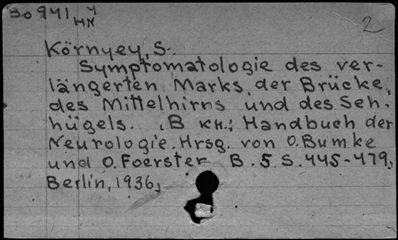 30941 4/HN
2
Környey, S.
Symptomatologie des ver-
längerten Marks, der Brücke,
des Mittelhirns und des Seh-
hügels. B кн.: Handbuch der
Neurologie. Hrsg. von O. Bumke
und O. Foerster B. 5. S. 445-479,
Berlin, 1936,